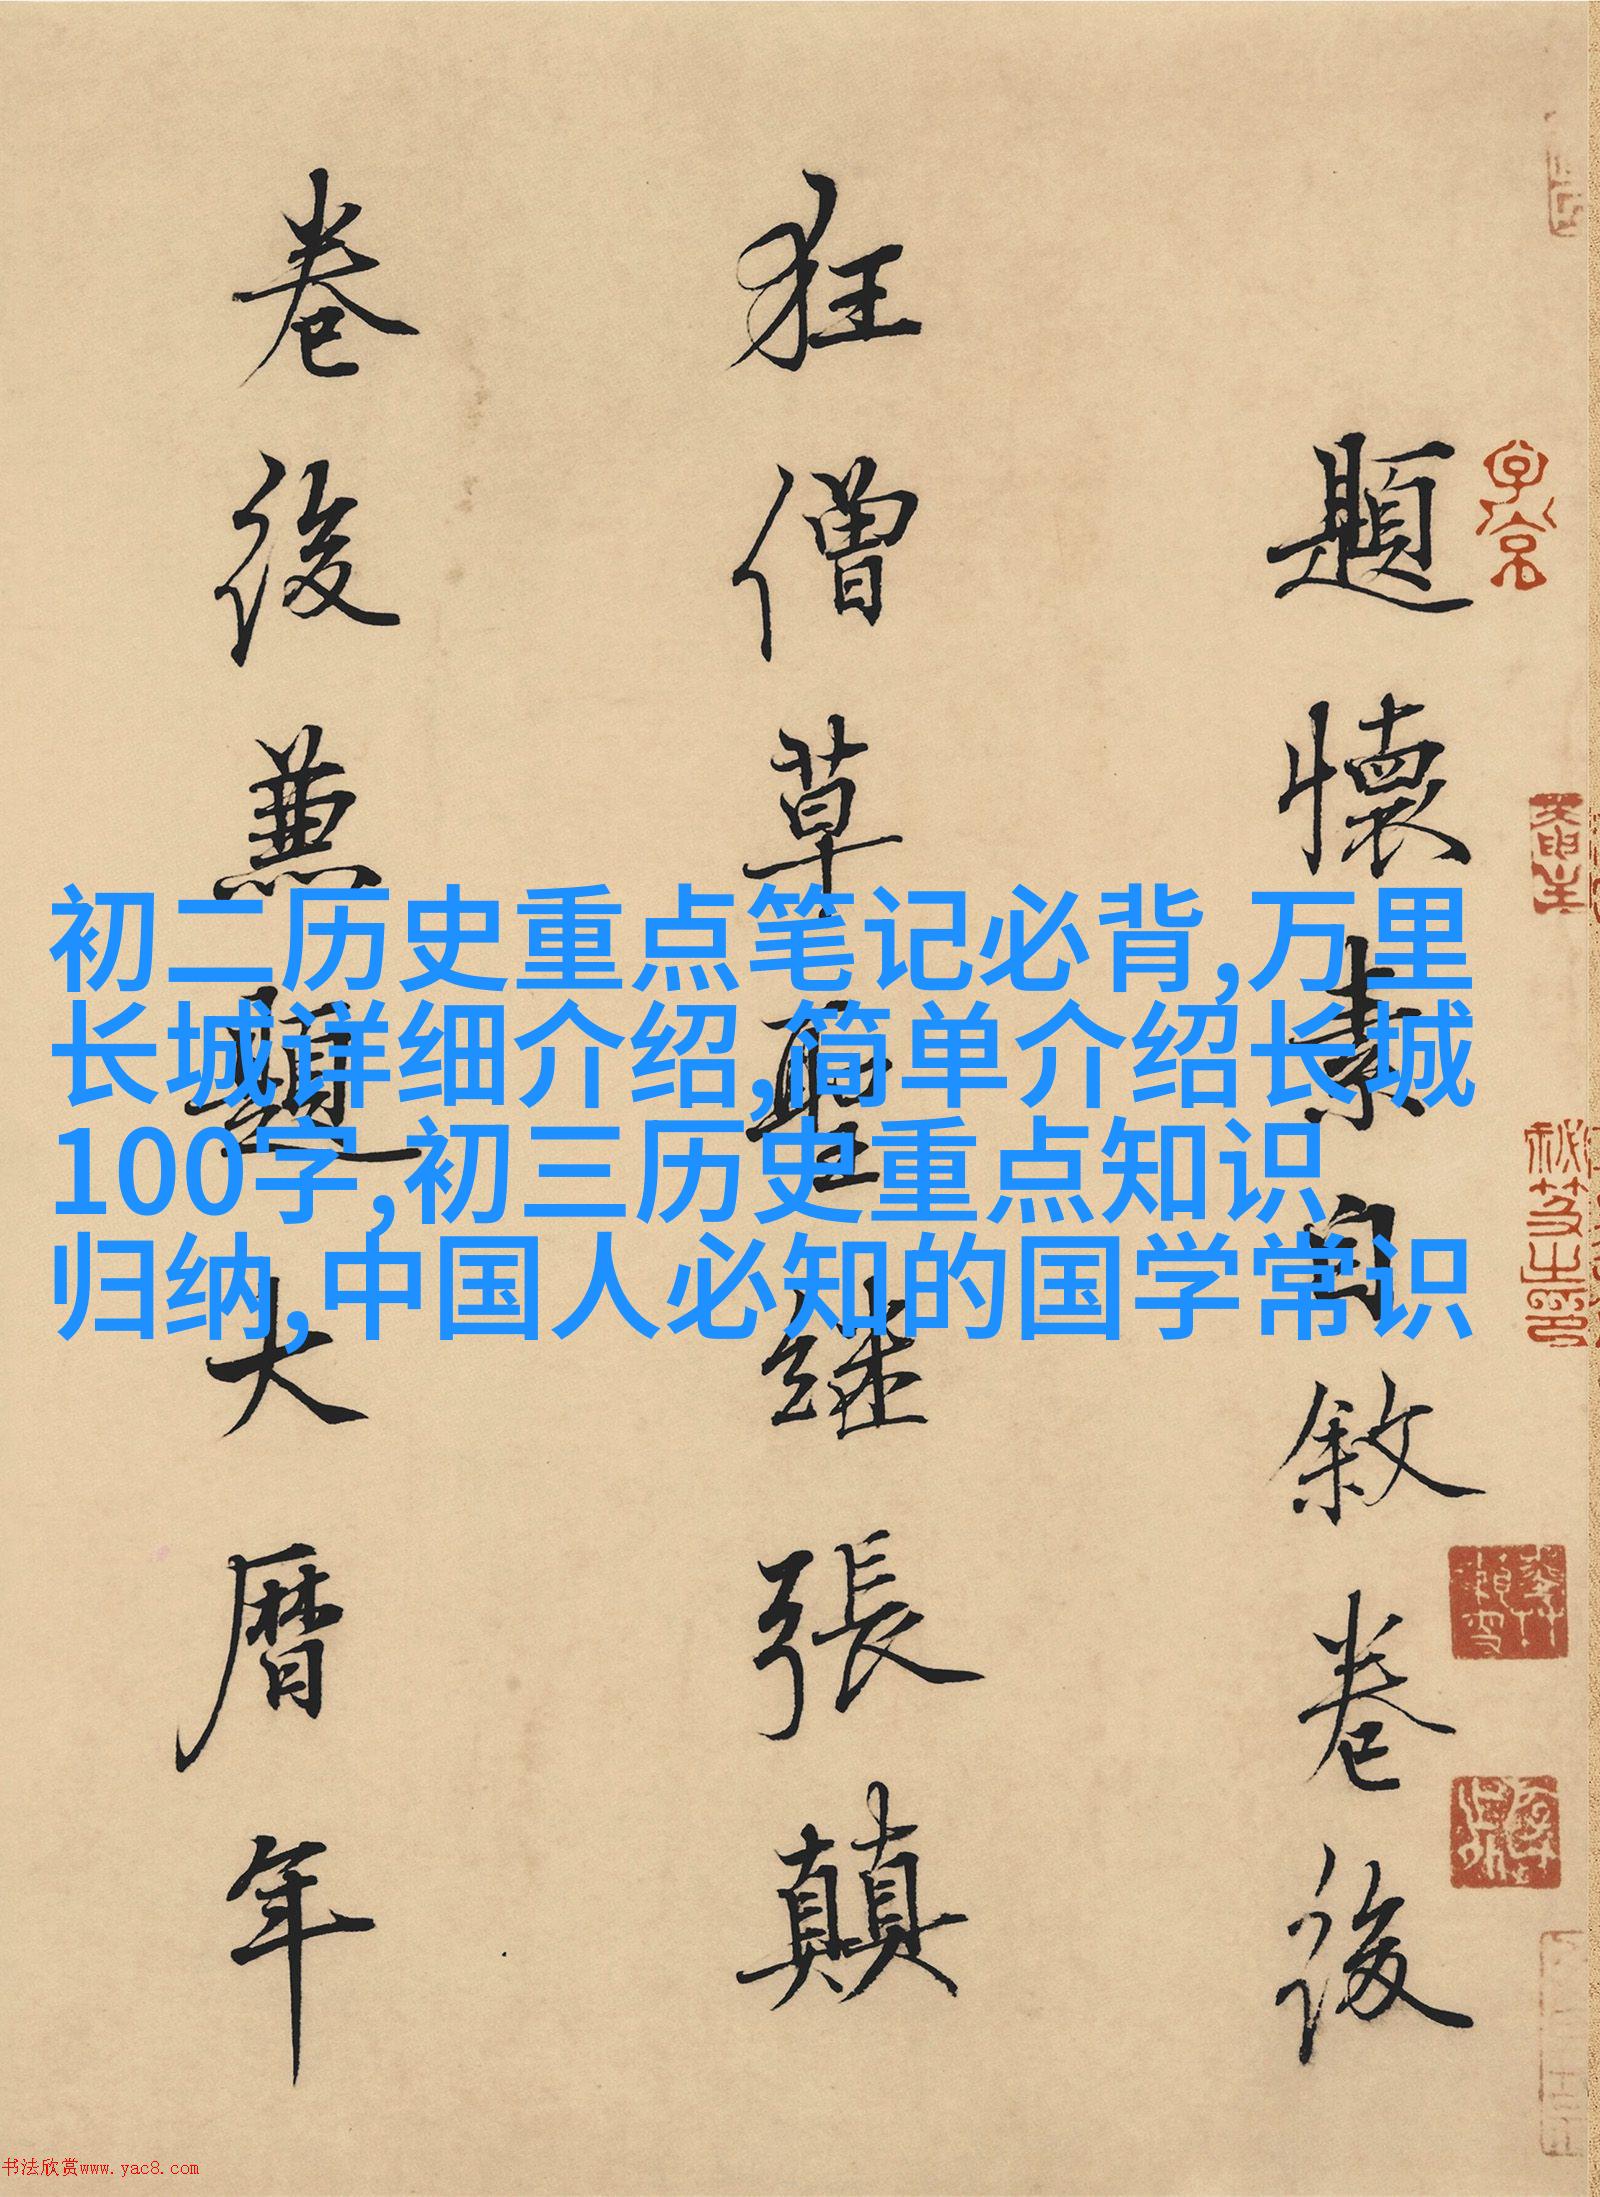 題懷素自敘卷後
狂僧草聖继張顛
卷後兼題大曆年
初二历史重点笔记必背,万里
长城详细介绍,简单介绍长城
100字,初三历史重点知识
归纳,中国人必知的国学常识
书法欣赏www.yac8.com